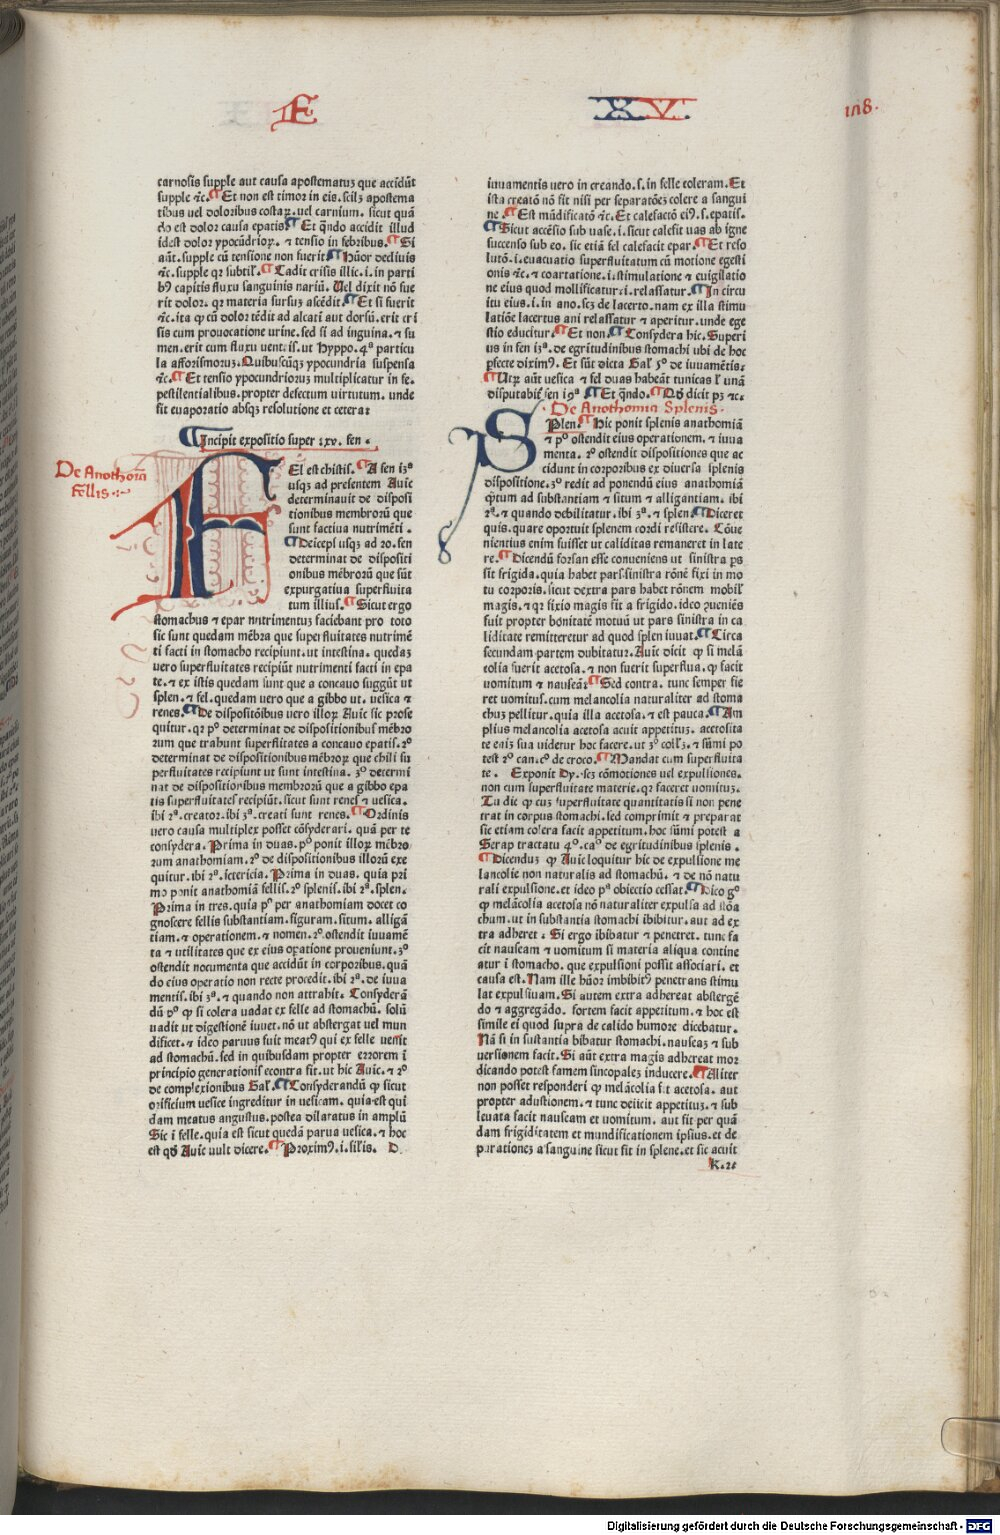 F
XV
118.
carnosis supple aut causa apostematuʒ que accidūt
supple ⁊c. ¶Et non est timor in eis. scilʒ apostema
tibus uel doloribus costaꝝ. uel carnium. sicut quā
do est dolor causa epatis. ¶Et qn̄do accidit illud
idest dolor ypocūdrioꝝ. ⁊ tensio in febribus. ¶Si
aūt. supple cū tensione non fuerit. ¶Hūor decliuis
⁊c. supple qꝛ subtil'. ¶Cadit crisis illic. i. in parti
bꝰ capitis fluxu sanguinis nariū. Uel dixit nō fue
rit dolor. qꝛ materia sursuʒ ascēdit. ¶Et si fuerit
⁊c. ita ꝙ cū dolor tēdit ad alcati aut dorsū. erit cri
sis cum prouocatione urine. sed si ad inguina. ⁊ fu
men. erit cum fluxu uentris. ut Hyppo. 4ª particu
la afforismoruʒ. Quibuscūqʒ ypocundria suspensa
⁊c. ¶Et tensio ypocundrioruʒ multiplicatur in fe.
pestilentialibus. propter defectum uirtutum. unde
fit euaporatio absqʒ resolutione et cetera:
¶Incipit expositio super .xv. fen.
De Anothomīa
fellis
FEl est chistis. ¶A fen 13ª
usqʒ ad presentem Auic̄
determinauit de disposi
tionibus membrorū que
sunt factiua nutrimēti.
¶Deicepſ usqʒ ad 20. fen
determinat de dispositi
onibus mēbrorū que sūt
expurgatiua superfluita
tum illius. ¶Sicut ergo
stomachus ⁊ epar nutrimentuʒ faciebant pro toto
sic sunt quedam mēbra que superfluitates nutrimē
ti facti in stomacho recipiunt. ut intestina. quedaʒ
uero superfluitates recipiūt nutrimenti facti in epa
te. ⁊ ex istis quedam sunt que a concauo suggūt ut
splen. ⁊ fel. quedam uero que a gibbo ut. uesica ⁊
renes. ¶De dispositōibus uero illoꝝ Auic̄ sic prose
quitur. qꝛ pº determinat de dispositionibuſ mēbro
rum que trahunt superfluitates a concauo epatis. 2º
determinat de dispositionibus mēbroꝝ que chili su
perfluitates recipiunt ut sunt intestina. 3º determi
nat de dispositionibus membrorū que a gibbo epa
tis superfluitateſ recipiūt. sicut sunt reneſ ⁊ uesica.
ibi 2ª. creator. ibi 3ª. creati sunt renes. ¶Ordinis
uero causa multiplex posset cōsyderari. quā per te
consydera. Prima in duas. pº ponit illoꝝ mēbro
rum anathomiam. 2º de dispositionibus illorū exe
quitur. ibi 2ª. ictericia. Prima in duas. quia pri
mo ponit anathomiā fellis. 2º splenis. ibi 2ª. splen.
Prima in tres. quia pº per anathomiam docet co
gnoscere fellis substantiam. figuram. situm. alligā
tiam. ⁊ operationem. ⁊ nomen. 2º ostendit iuuamē
ta ⁊ utilitates que ex eius oꝑatione proueniunt. 3º
ostendit nocumenta que accidūt in corporibus. quā
do eius operatio non recte procedit. ibi 2ª. de iuua
mentis. ibi 3ª. ⁊ quando non attrahit. Consyderā
dū pº ꝙ si colera uadat ex felle ad stomachū. solū
uadit ut digestionē iuuet. nō ut abstergat uel mun
dificet. ⁊ ideo paruus fuit meatꝰ qui ex felle uenit
ad stomachū. sed in quibusdam propter errorem ī
principio generationiſ econtra fit. ut hic Auic̄. ⁊ 2º
de complexionibus Gal'. ¶Consyderandū ꝙ sicut
orificium uesice ingreditur in uesicam. quia est qui
dam meatus angustus. postea dilatatus in amplū
Sic ī felle. quia est sicut quedā parua uesica. ⁊ hoc
est qḋ Auic̄ uult dicere. ¶Proximꝰ. i. silis. D.
iuuamentis uero in creando. s. in felle coleram. Et
ista creatō nō fit nisi per separatōeʒ colere a sangui
ne. ¶Est mūdificatō ⁊c. Et calefactō eiꝰ. s. epatis.
¶Sicut accēsio sub uase. i. sicut calefit uas ab igne
succenso sub eo. sic etiā fel calefacit epar. ¶Et reso
lutō. i. euacuatio superfluitatum cū motione egesti
onis ⁊c. ⁊ coartatione. i. stimulatione ⁊ euigilatio
ne eius quod mollificatur. i. relassatur. ¶In circu
itu eius. i. in ano. scʒ de lacerto. nam ex illa stimu
latiōe lacertus ani relassatur ⁊ aperitur. unde ege
stio educitur. ¶Et non. ¶Consydera hic. Superi
us in fen 13ª. de egritudinibus stomachi ubi de hoc
ꝑfecte diximꝰ. Et sūt dicta Gal' 5º de iuuamētis.
¶Utꝝ aūt uesica ⁊ fel duas habeāt tunicas ł unā
disputabit̄ fen 19ª ¶Et qn̄do. ¶Qḋ dicit pʒ ⁊c.
De Anothomia Splenis.
SPlen. ¶Hic ponit splenis anathomiā
⁊ pº ostendit eius operationem. ⁊ iuua
menta. 2º ostendit dispositiones que ac
cidunt in corporibus ex diuersa splenis
dispositione. 3º redit ad ponendū eius anathomiā
ꝙtum ad substantiam ⁊ situm ⁊ alligantiam. ibi
2ª. ⁊ quando debilitatur. ibi 3ª. ⁊ splen. ¶Diceret
quis. quare oportuit splenem cordi resistere. Cōue
nientius enim fuisset ut caliditas remaneret in late
re. ¶Dicendū forsan esse conueniens ut sinistra ꝑs
sit frigida. quia habet pars sinistra rōnē fixi in mo
tu corporis. sicut dextra pars habet rōnem mobil'
magis. ⁊ qꝛ fixio magis fit a frigido. ideo ꝯueniēs
fuit propter bonitatē motuū ut pars sinistra in ca
liditate remitteretur ad quod splen iuuat. ¶Circa
secundam partem dubitatur. Auic̄ dicit ꝙ si melā
colia fuerit acetosa. ⁊ non fuerit superflua. ꝙ facit
uomitum ⁊ nauseā: ¶Sed contra. tunc semper fie
ret uomituſ. cum melancolia naturaliter ad stoma
chuʒ pellitur. quia illa acetosa. ⁊ est pauca. ¶Am
plius melancolia acetosa acuit appetituʒ. acetosita
te enīʒ sua uidetur hoc facere. ut 3º collʒ. ⁊ sūmi po
test 2º can. cº de croco. ¶Mandat cum superfluita
te. Exponit Dy. scʒ cōmotiones uel expulsiones.
non cum superfluitate materie. qꝛ faceret uomituʒ.
Tu dic ꝙ cuʒ superfluitate quantitatis si non pene
trat in corpus stomachi. sed comprimit ⁊ preparat
sic etiam colera facit appetitum. hoc sūmi potest a
Serap tractatu 4º. caº de egritudinibus splenis.
¶Dicenduʒ ꝙ Auic̄ loquitur hic de expulsione me
lancolie non naturalis ad stomachū. ⁊ de nō natu
rali expulsione. et ideo pª obiectio cessat. ¶Dico gº
ꝙ melācolia acetosa nō naturaliter expulsa ad stōa
chum. ut in substantia stomachi ibibitur. aut ad ex
tra adheret. Si ergo ibibatur ⁊ penetret. tunc fa
cit nauseam ⁊ uomitum si materia aliqua contine
atur ī stomacho. que expulsioni possit associari. et
causa est. Nam ille hūor imbibitꝰ penetrans stimu
lat expulsiuam. Si autem extra adhereat abstergē
do ⁊ aggregādo. fortem facit appetitum. ⁊ hoc est
simile ei quod supra de calido humore dicebatur.
Nā si in sustantia bibatur stomachi. nauseaʒ ⁊ sub
uersionem facit. Si aūt extra magis adhereat mor
dicando potest famem sincopaleʒ inducere. ¶Aliter
non posset responderi ꝙ melācolia fit acetosa. aut
propter adustionem. ⁊ tunc deiicit appetituʒ. ⁊ sub
leuata facit nauseam et uomitum. aut fit per quā
dam frigiditatem et mundificationem ipsius. et de
parationeʒ a sanguine sicut fit in splene. et sic acuit
K. 2
Digitalisierung gefördert durch die Deutsche Forschungsgemeinschaft - DFG